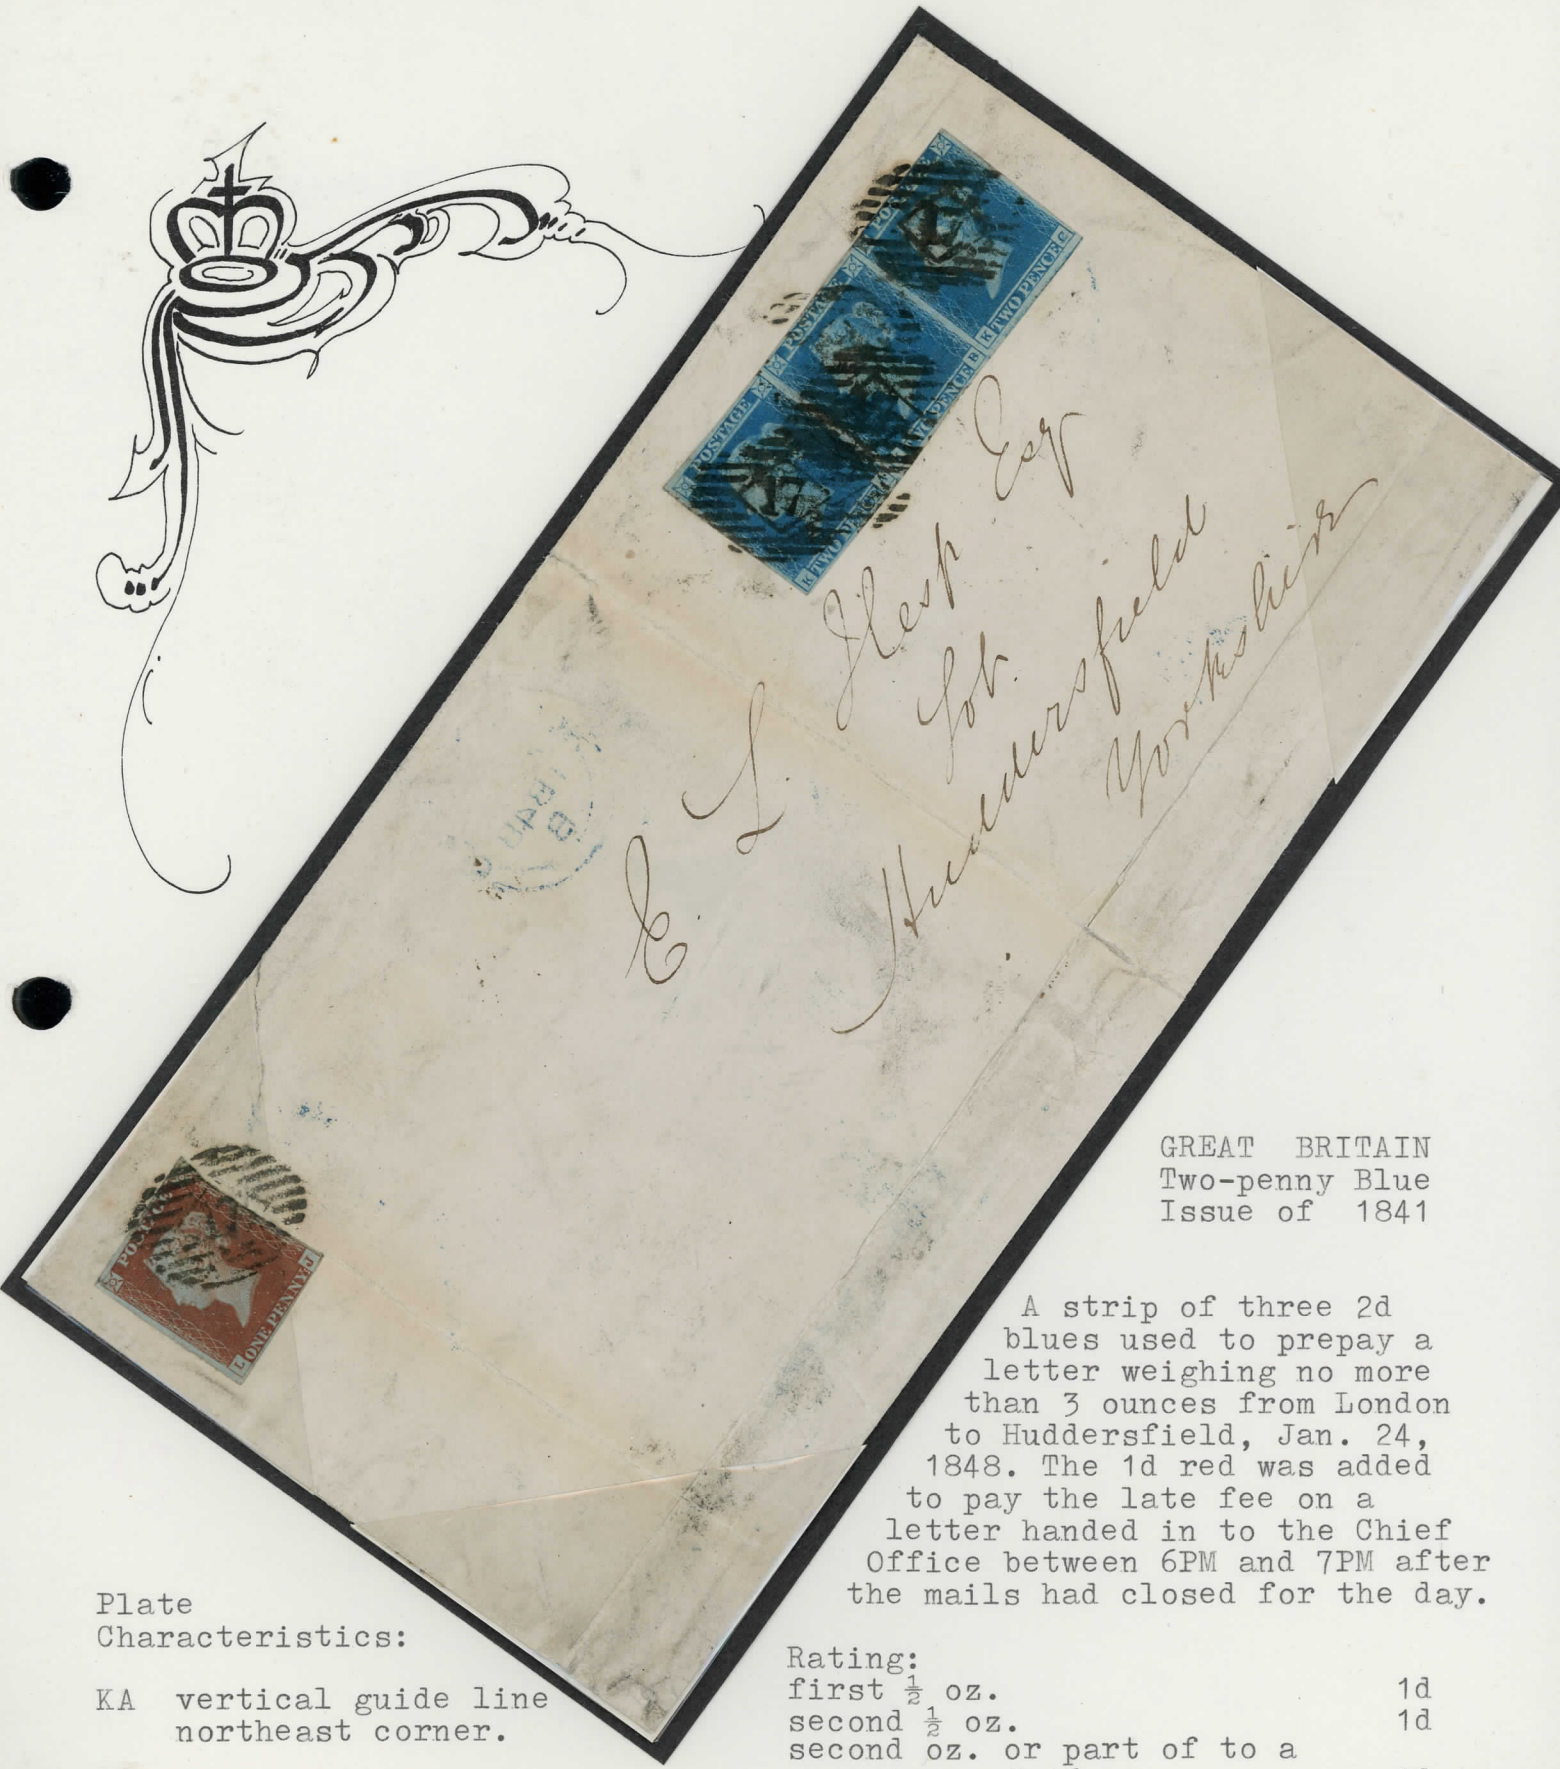 POSTAGE
K TWO PENCE
POSTAGE
TWO PENCE B
K TWO PENCE C
17
E. L. Hesp Esq
Huddersfield
Yorkshire
L ONE PENNY J
GREAT BRITAIN
Two-penny Blue
Issue of 1841
A strip of three 2d
blues used to prepay a
letter weighing no more
than 3 ounces from London
to Huddersfield, Jan. 24,
1848. The 1d red was added
to pay the late fee on a
letter handed in to the Chief
Office between 6PM and 7PM after
the mails had closed for the day.
Plate
Characteristics:
KA vertical guide line
northeast corner.
Rating:
first ½ oz. 1d
second ½ oz. 1d
second oz. or part of to a